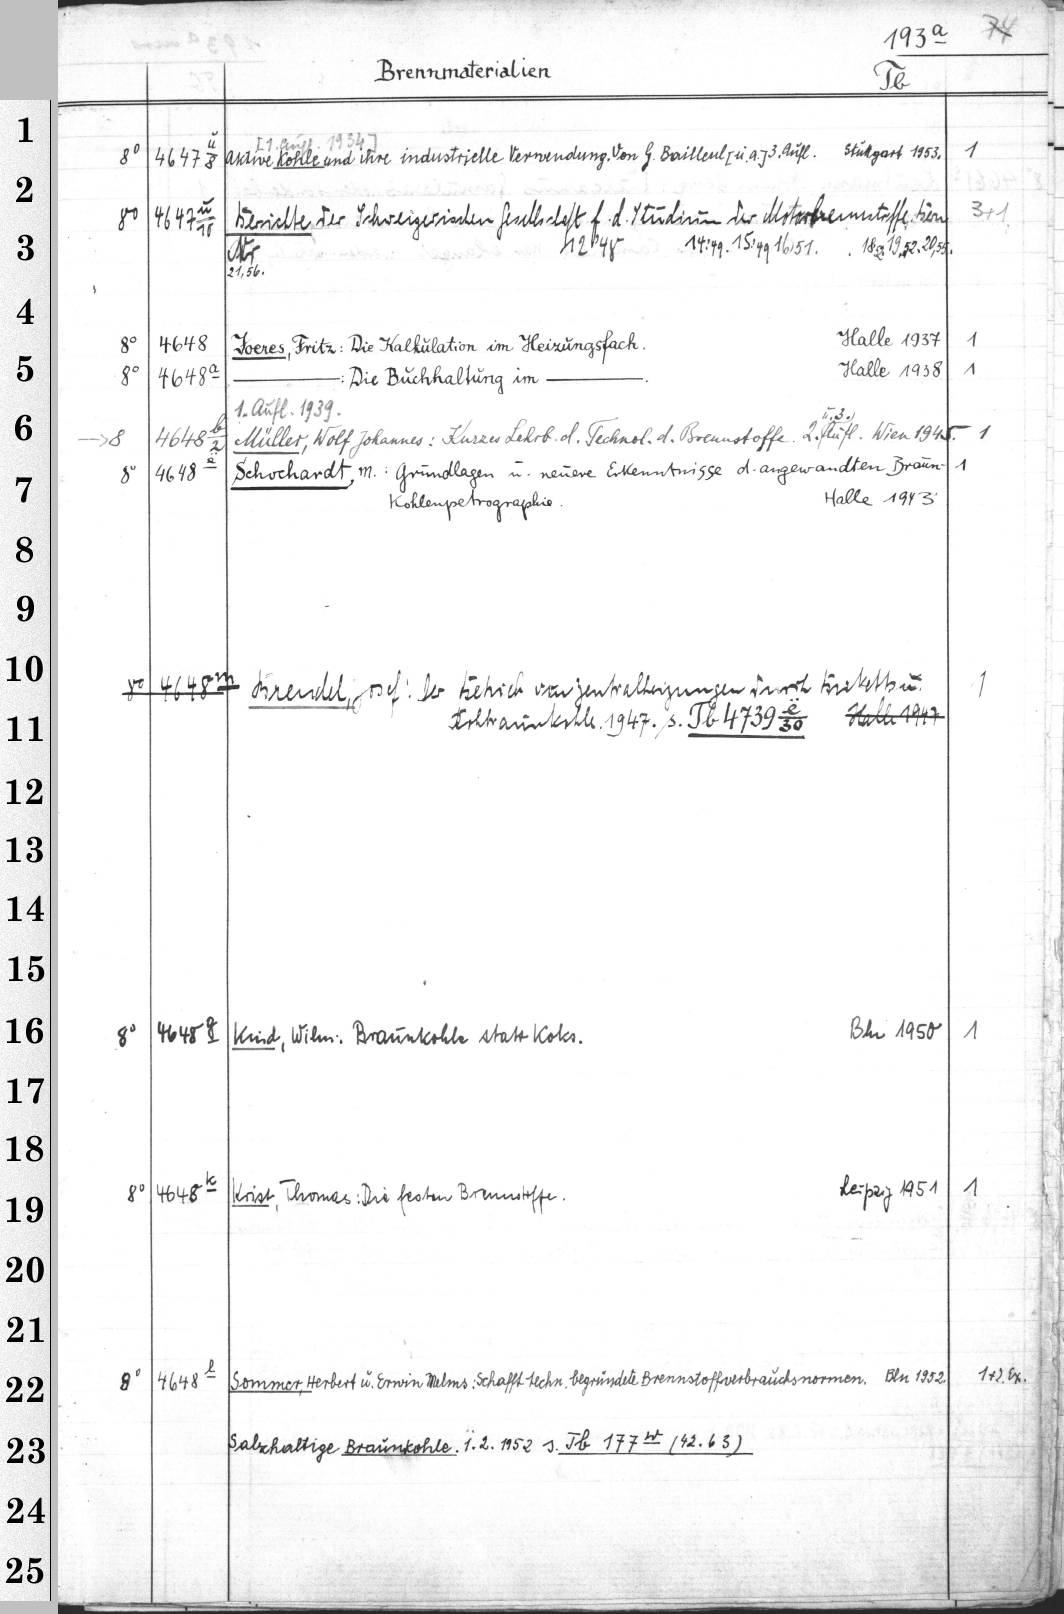 193a 74
Brennmaterialien Tb
[1. Aufl. 1934]
8° 4647 ü/8 Aktive Kohle und ihre industrielle Verwendung. Von G. Bailleul [u. a.] 3. Aufl. Stuttgart 1953. 1
8° 4647 ü/10 Berichte der Schweizerischen Gesellschaft f. d. Studium der Motorbrennstoffe. Bern 3+1
Nr 12 '48 14:49. 15:49 16:51. 18 19,52. 20,55.
21,56.
8° 4648 Joeres, Fritz: Die Kalkulation im Heizungsfach. Halle 1937 1
8° 4648a ———: Die Buchhaltung im ———. Halle 1938 1
1. Aufl. 1939. u. 3.
→8 4648 b/2 Müller, Wolf Johannes: Kurzes Lehrb. d. Technol. d. Brennstoffe. 2. Aufl. Wien 1945. 1
8° 4648 e Schochardt, M.: Grundlagen u. neuere Erkenntnisse d. angewandten Braun- 1
kohlenpetrographie. Halle 1943
8° 4648m Krendel, Josef: Der Betrieb von Zentralheizungen durch Briketts u. 1
Rohbraunkohle. 1947. s. Tb 4739 e/30 Halle 1947
8° 4648 g Kind, Wilm: Braunkohle statt Koks. Bln 1950 1
8° 4648 k Krist, Thomas: Die festen Brennstoffe. Leipzig 1951 1
8° 4648 l Sommer, Herbert u. Erwin Melms: Schafft techn. begründete Brennstoffverbrauchsnormen. Bln 1952. 1+2. Ex.
Salzhaltige Braunkohle. 1.2. 1952 s. Tb 177w (42.63)
1
2
3
4
5
6
7
8
9
10
11
12
13
14
15
16
17
18
19
20
21
22
23
24
25